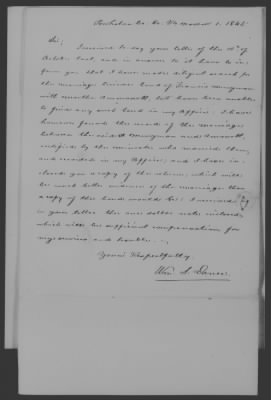 Powhatan Co. Va
Sir;
I received to day your letter of the
October last, and in answer to it have to in-
form you that I have made diligent search for
the marriage license bond of Francis
with Martha, but have been unable
to find any such bond in my office. I have
however found the record of the marriage
between the said and
certified by the minister who married them,
and recorded in my office; and I have in-
closed you a copy of the return, which will
be much better evidence of the marriage than
a copy of the bond would be. I received
in your letter the one dollar note inclosed,
which will be sufficient compensation for
my services and trouble.
Yours Respectfully
Wm S. Dance.